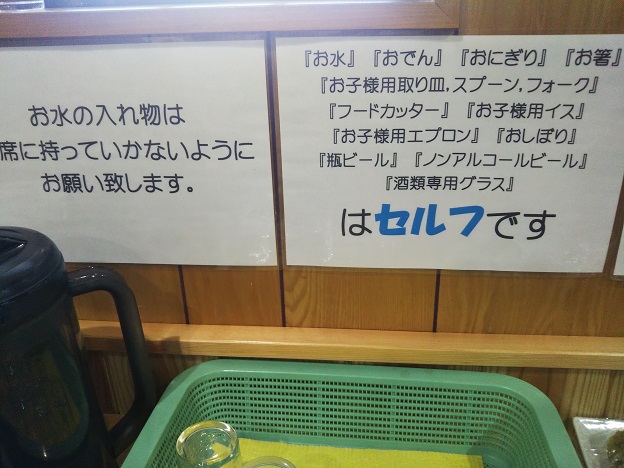 お水の入れ物は
席に持っていかないように
お願い致します。
『お水』『おでん』『おにぎり』『お箸』
『お子様用取り皿,スプーン,フォーク』
『フードカッター』『お子様用イス』
『お子様用エプロン』『おしぼり』
『瓶ビール』『ノンアルコールビール』
『酒類専用グラス』
はセルフです